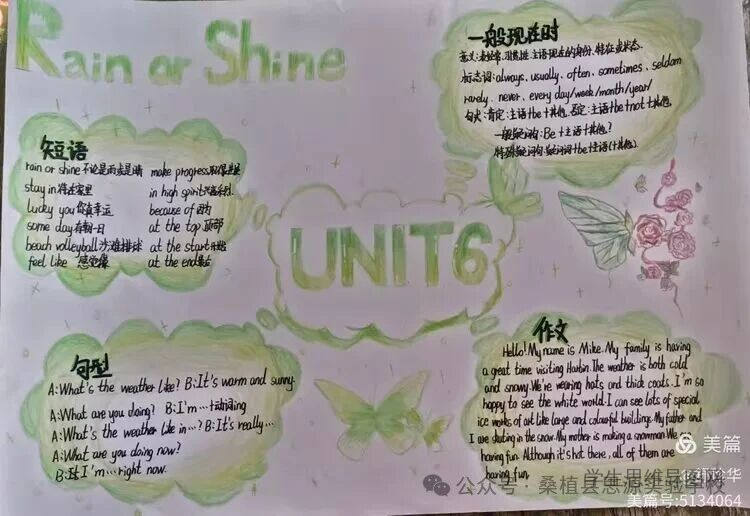 Rain or Shine
一般现在时
标志词:always、usually、often、sometimes、seldom
rarely、never、every day/week/month/year/
句式:肯定:主语+be+其他.否定:主语+be+not+其他.
一般疑问句:Be+主语+其他?
特殊疑问句:疑问词+be+主语(+其他).
短语
rain or shine 不论是雨或是晴
stay in 待在家里
lucky you 你真幸运
some day 有朝一日
beach volleyball 沙滩排球
feel like 感觉像
make progress 取得进步
in high spirit
because of 因为
at the top 顶部
at the start 开始
at the end 最后
UNIT6
句型
A:What's the weather like? B:It's warm and sunny.
A:What are you doing? B:I'm…+动词ing
A:What's the weather like in…? B:It's really…
A:What are you doing now?
B:I'm…right now.
作文
Hello! My name is Mike. My family is having
a great time visiting Harbin. The weather is both cold
and snowy. We're wearing hats and thick coats. I'm so
happy to see the white world. I can see lots of special
ice works of art like large and colourful buildings. My father and
I are skating in the snow. My mother is making a snowman. We
having fun. Although it's hot there, all of them are
having fun.
美篇
公众号·桑植县思源实验学校
美篇号:5134064